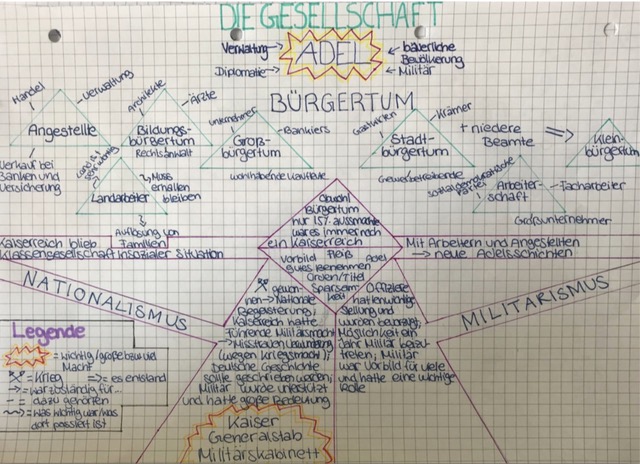 DIE GESELLSCHAFT
Verwaltung
Diplomatie
ADEL
bäuerliche
Bevölkerung
Militär
BÜRGERTUM
Handel
Verwaltung
Angestellte
Verkauf bei
Banken und
Versicherung
Architekte
Ärzte
Bildungs-
bürgertum
Rechtsanwalt
Unternehmer
Bankiers
Groß-
bürgertum
wohlhabende Kaufleute
Gastwirten
Krämer
Stadt-
bürgertum
Gewerbetreibende
+ niedere
Beamte
Klein-
bürgertum
Landarbeiter
Muss
erhalten
bleiben
Auflösung von
Familien
sozialdemokratische
Partei
Arbeiter-
schaft
Facharbeiter
Großunternehmer
Kaiserreich blieb
Klassengesellschaft in sozialer Situation
Obwohl
Bürgertum
nur 15% ausmachte
war es immer noch
ein Kaiserreich
Mit Arbeitern und Angestellten
→ neue Adelsschichten
Vorbild Fleiß Adel
gutes Benehmen
Orden/Titel
Sparsam-
keit
NATIONALISMUS
MILITARISMUS
gewon-
nen → Nationale
Begeisterung,
Kaiserreich hatte
führende Militärmacht
→ Misstrauen
(wegen Kriegsmacht);
Deutsche Geschichte
sollte geschrieben werden;
Militär wurde unterstützt
und hatte große Bedeutung
Offiziere
hatten wichtige
Stellung und
wurden bevorzugt;
Möglichkeit ein
Jahr Militär beizu-
treten; Militär
war Vorbild für viele
und hatte eine wichtige
Rolle
Legende
= wichtig/große bzw. viel
Macht
= Krieg
=> = es entstand
→ = war zuständig für...
- = dazu gehören
= was wichtig war/was
dort passiert ist
Kaiser
Generalstab
Militärskabinett